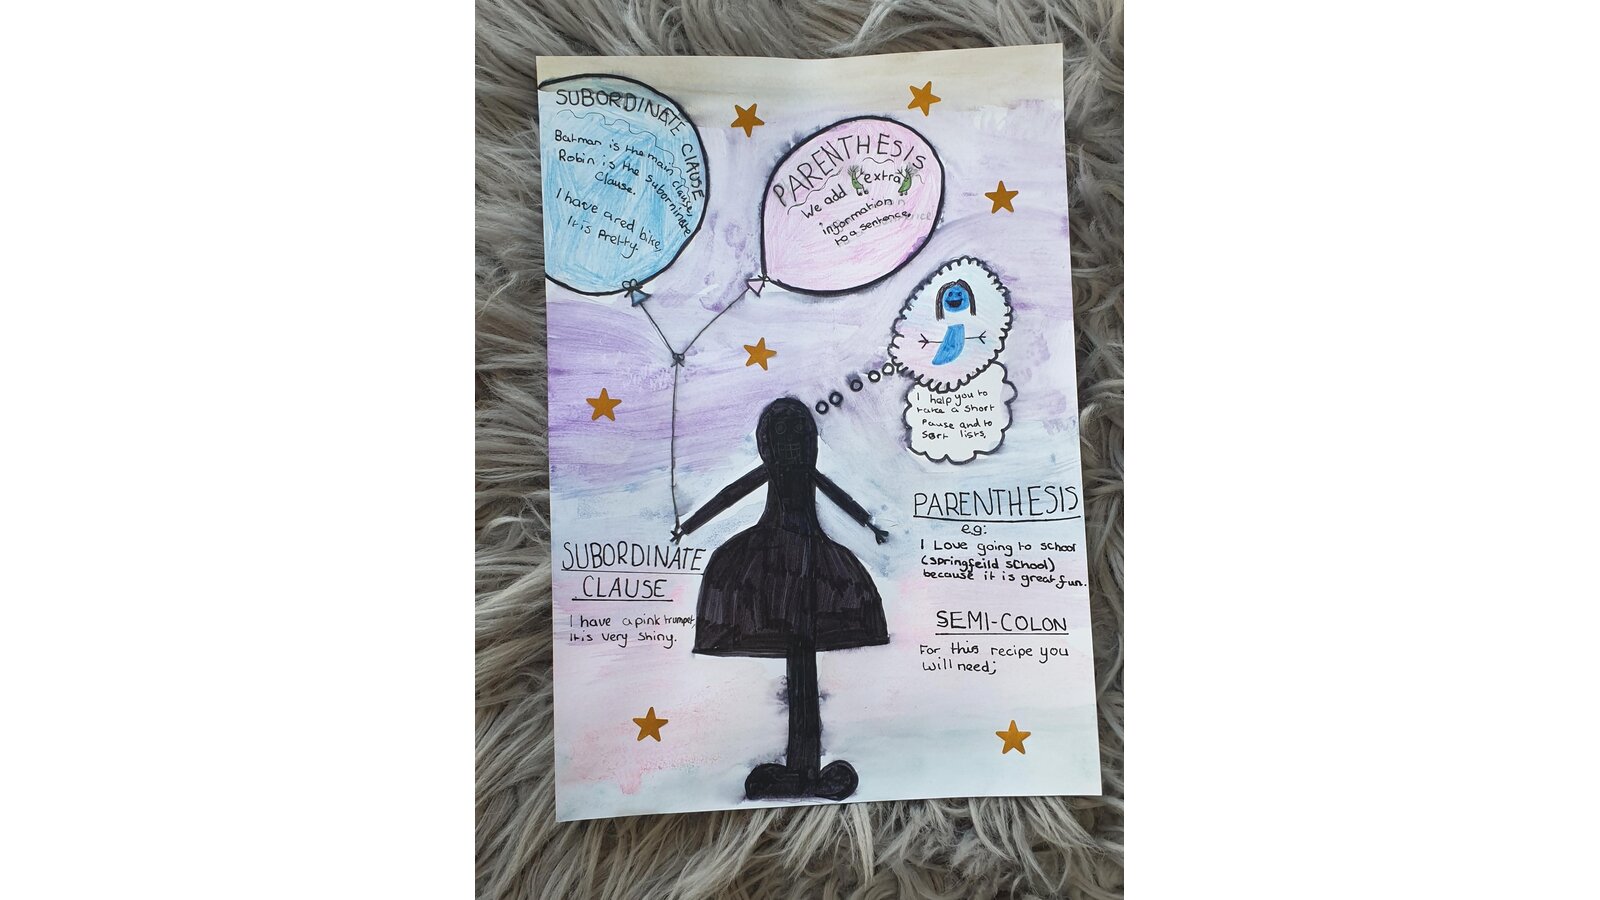 SUBORDINATE CLAUSE
Batman is the main clause,
Robin is the suborninate
Clause.
I have a red bike,
It is Pretty.
PARENTHESIS
We add (extra)
information
to a sentence.
I help you to
take a short
Pause and to
sort lists,
PARENTHESIS
eg:
I Love going to school
(springfeild school)
because it is great fun.
SUBORDINATE
CLAUSE
I have a pink trumpet,
It is very shiny.
SEMI-COLON
For this recipe you
will need;